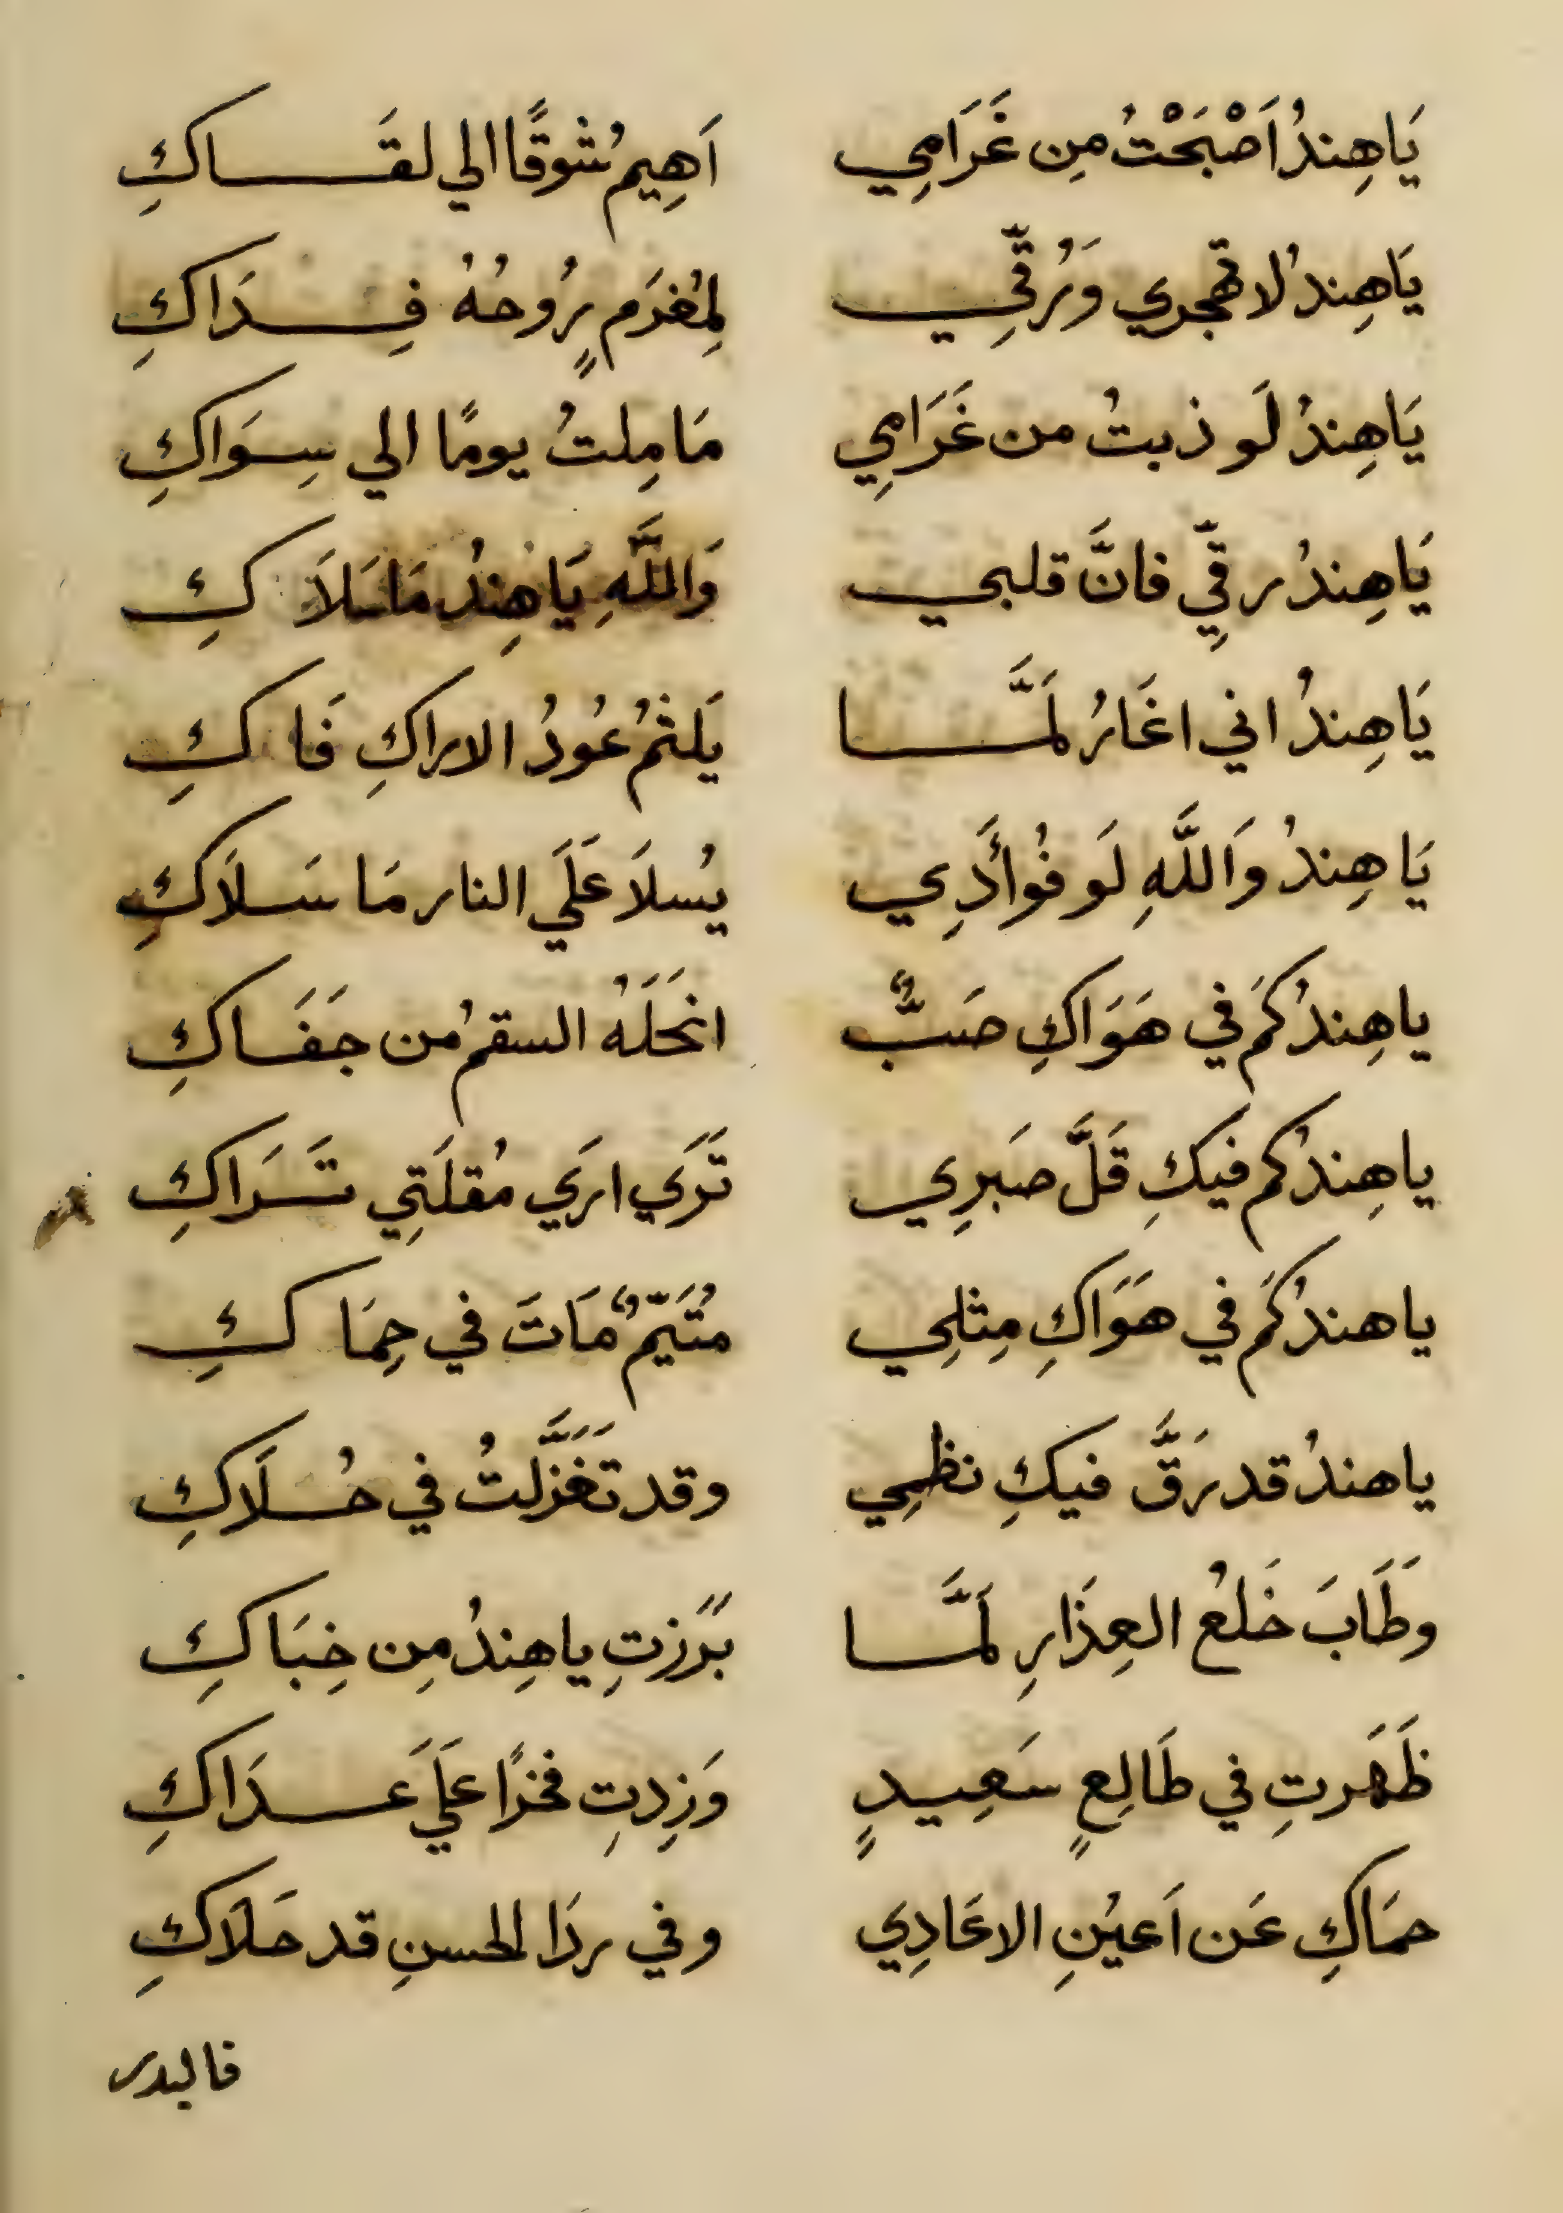 يَاهِندُ اَصْبَحْتُ مِن غَرَامِي اَهِيمُ شَوقًا الي لقَاكِ
يَاهِندُ لا تهجري وَرُقّي لِمُغرَمٍ رُوحُهُ فِدَاكِ
يَاهِندُ لَو ذبتُ من غَرَامِي مَا مِلتُ يومًا الي سِوَاكِ
يَاهِندُ رقّي فانَّ قلبي وَاللَّهِ يَاهِندُ مَا سَلَاكِ
يَاهِندُ اني اغَارُ لمَّا يَلثمُ عُودُ الاراكِ فَاكِ
يَاهِندُ وَاللَّهِ لَو فُوأَدِي يُسلَا عَلَي النار مَا سَلَاكِ
ياهِندُ كَم في هَوَاكِ صَبٌّ انحَلَهُ السقمُ من جَفَاكِ
ياهِندُ كم فيكِ قَلَّ صَبرِي تَرَي ارَي مُقلَتِي تَرَاكِ
ياهندُ كَم في هَوَاكِ مِثلِي مُتَيّمٌ مَاتَ في حِمَاكِ
ياهندُ قد رَقَّ فيكِ نظمِي وقد تَغَزَّلتُ في حُلَاكِ
وطَابَ خَلعُ العِذَارِ لمَّا بَرَزتِ ياهِندُ مِن خِبَاكِ
ظَهَرتِ في طَالِعٍ سَعِيدٍ وَزِدتِ فخرًا عَلَي عَدَاكِ
حمَاكِ عَن اَعيُنِ الاعَادِي وفي ردَا الحسنِ قد حَلَاكِ
فالبدر